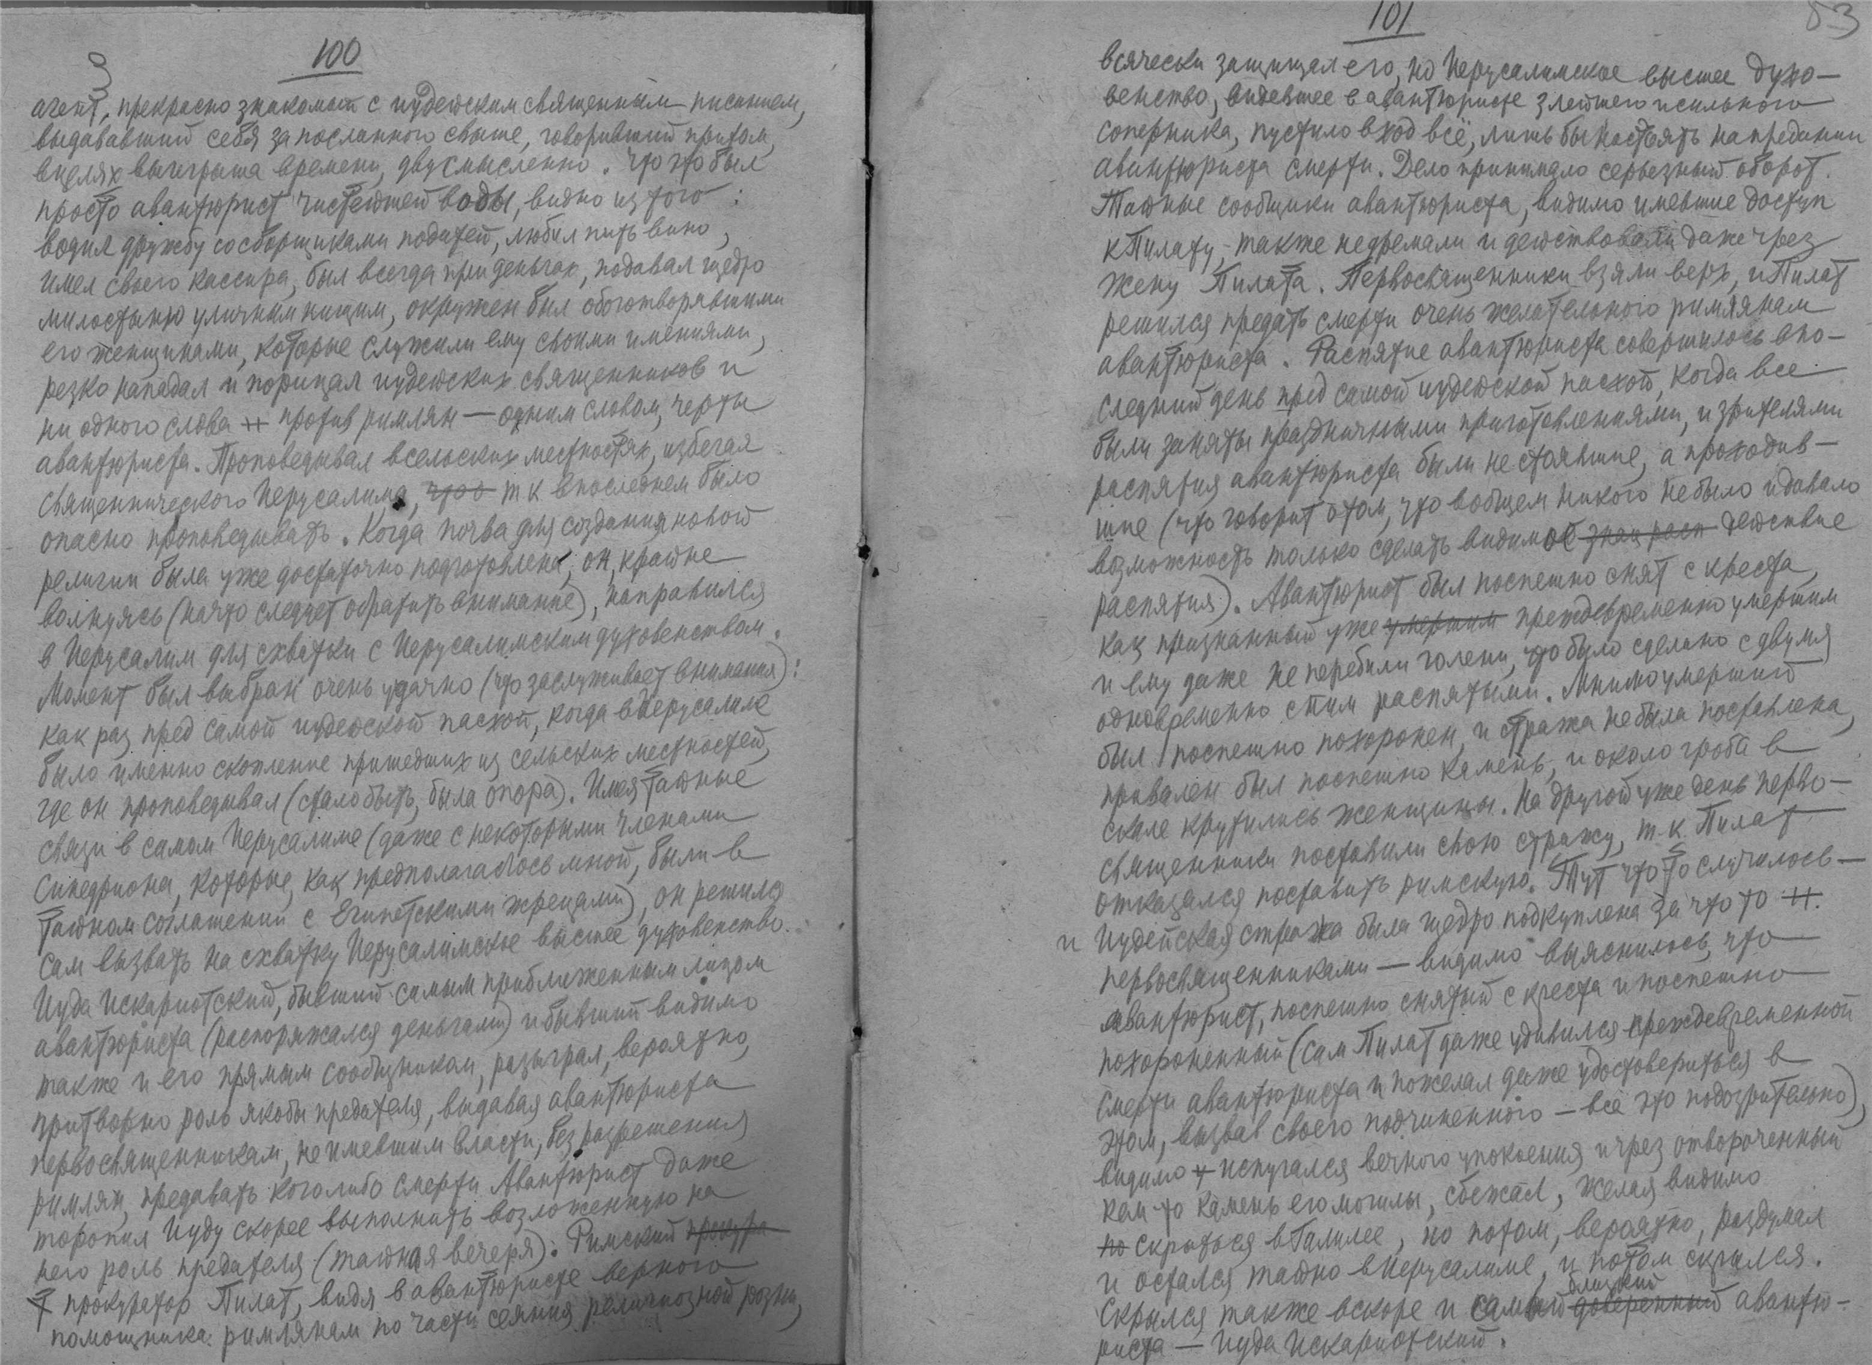 100
агент, прекрасно знакомый с иудейским священным писанием,
выдававший себя за посланного свыше, говоривший притом,
в целях выигрыша времени, двусмысленно. Что это был
просто авантюрист чистейшей воды, видно из того:
водил дружбу со сборщиками податей, любил пить вино,
имел своего кассира, был всегда при деньгах, подавал щедро
милостыню уличным нищим, окружен был обоготворявшими
его женщинами, которые служили ему своими имениями,
резко нападал и порицал иудейских священников и
ни одного слова против римлян — одним словом, черты
авантюриста. Проповедывал в сельских местностях, избегая
священнического Иерусалима, что т к в последнем было
опасно проповедывать. Когда почва для создания новой
религии была уже достаточно подготовлена, он, крайне
волнуясь (на что следует обратить внимание), направился
в Иерусалим для схватки с Иерусалимским духовенством.
Момент был выбран очень удачно (что заслуживает внимания):
как раз пред самой иудейской пасхой, когда в Иерусалиме
было именно скопление пришедших из сельских местностей,
где он проповедывал (стало быть, была опора). Имея тайные
связи в самом Иерусалиме (даже с некоторыми членами
Синедриона, которые, как предполагалось мной, были в
тайном соглашении с Египетскими жрецами), он решился
сам вызвать на схватку Иерусалимское высшее духовенство.
Иуда Искариотский, бывший самым приближенным лицом
авантюриста (распоряжался деньгами) и бывший видимо
также и его прямым сообщником, разыграл, вероятно,
притворно роль якобы предателя, выдавая авантюриста
первосвященникам, не имевшим власти, без разрешения
римлян, предавать кого либо смерти. Авантюрист даже
торопил Иуду скорее выполнить возложенную на
него роль предателя (тайная вечеря). Римский прокура
прокуратор Пилат, видя в авантюристе верного
помощника римлянам по части сеяния религиозной розни,
101
53
всячески защищал его, но Иерусалимское высшее духо-
венство, видевшее в авантюристе злейшего и сильного
соперника, пустило в ход всё, лишь бы настоять на предании
авантюриста смерти. Дело принимало серьезный оборот.
Тайные сообщики авантюриста, видимо имевшие доступ
к Пилату, также не дремали и действовали даже чрез
жену Пилата. Первосвященники взяли верх, и Пилат
решился предать смерти очень желательного римлянам
авантюриста. Распятие авантюриста совершилось в по-
следний день пред самой иудейской пасхой, когда все
были заняты праздничными приготовлениями, и зрителями
распятия авантюриста были не стоявшие, а проходив-
шие (что говорит о том, что вобщем никого не было и давало
возможность только сделать видимое знак расп действие
распятия). Авантюрист был поспешно снят с креста,
как признанный уже умершим преждевременно умершим
и ему даже не перебили голени, что было сделано с двумя
одновременно с ним распятыми. Мнимо умерший
был поспешно похоронен, и стража не была поставлена,
привален был поспешно камень, и около гроба в
скале крутились женщины. На другой уже день перво-
священники поставили свою стражу, т. к. Пилат
отказался поставить римскую. Тут что то случилось —
и Иудейская стража была щедро подкуплена за что то
первосвященниками — видимо выяснилось, что
авантюрист, поспешно снятый с креста и поспешно
похороненный (сам Пилат даже удивился преждевременной
смерти авантюриста и пожелал даже удостовериться в
этом, вызвав своего подчиненного — всё это подозрительно),
видимо испугался вечного упокоения и чрез отвороченный
кем то камень его могилы, сбежал, желая видимо
но скрыться в Галилее, но потом, вероятно, раздумал
и остался тайно в Иерусалиме, и потом скрылся.
Скрылся также вскоре и самый близкий доверенный авантю-
риста — Иуда Искариотский.